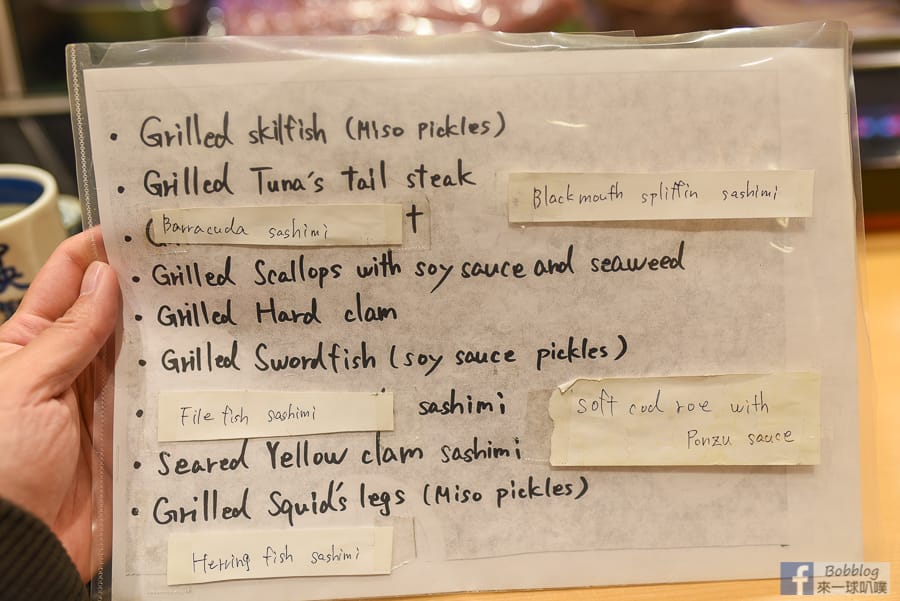 • Grilled skilfish (Miso pickles)
• Grilled Tuna's tail steak
Blackmouth splitfin sashimi
• Barracuda sashimi
• Grilled Scallops with soy sauce and seaweed
• Grilled Hard clam
• Grilled Swordfish (soy sauce pickles)
• File fish sashimi sashimi
soft cod roe with
Ponzu sauce
• Seared Yellow clam sashimi
• Grilled Squid's legs (Miso pickles)
Herring fish sashimi
Bobblog
來一球叭噗